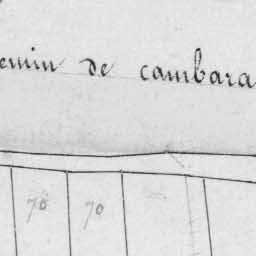 emin de cambara
70 70